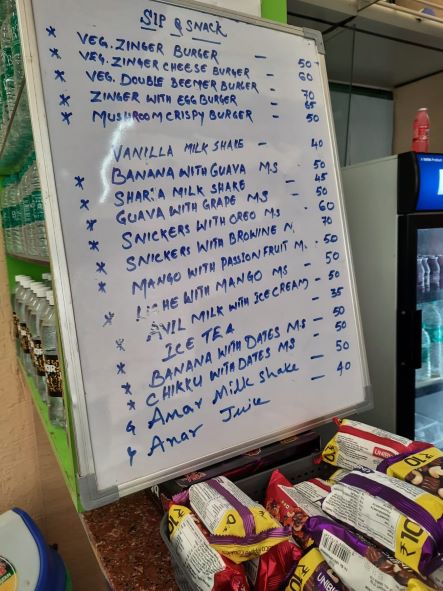 SIP & SNACK
* VEG. ZINGER BURGER - 50
* VEG. ZINGER CHEESE BURGER - 60
* VEG. DOUBLE DECKER BURGER - 70
* ZINGER WITH EGG BURGER - 65
* MUSHROOM CRISPY BURGER - 50
VANILLA MILK SHAKE - 40
* BANANA WITH GUAVA M.S - 50
* SHARJA MILK SHAKE - 45
GUAVA WITH GRAPE M.S - 50
* SNICKERS WITH OREO M.S - 60
* SNICKERS WITH BROWINE M. 70
* MANGO WITH PASSION FRUIT M. - 50
LICHE WITH MANGO MS - 50
AVIL MILK WITH ICE CREAM - 50
* ICE TEA - 35
* BANANA WITH DATES M.S - 50
* CHIKKU WITH DATES MS - 50
* Anar Milk Shake - 50
* Anar Juice - 40
₹10
₹10
₹10
UNIBIC